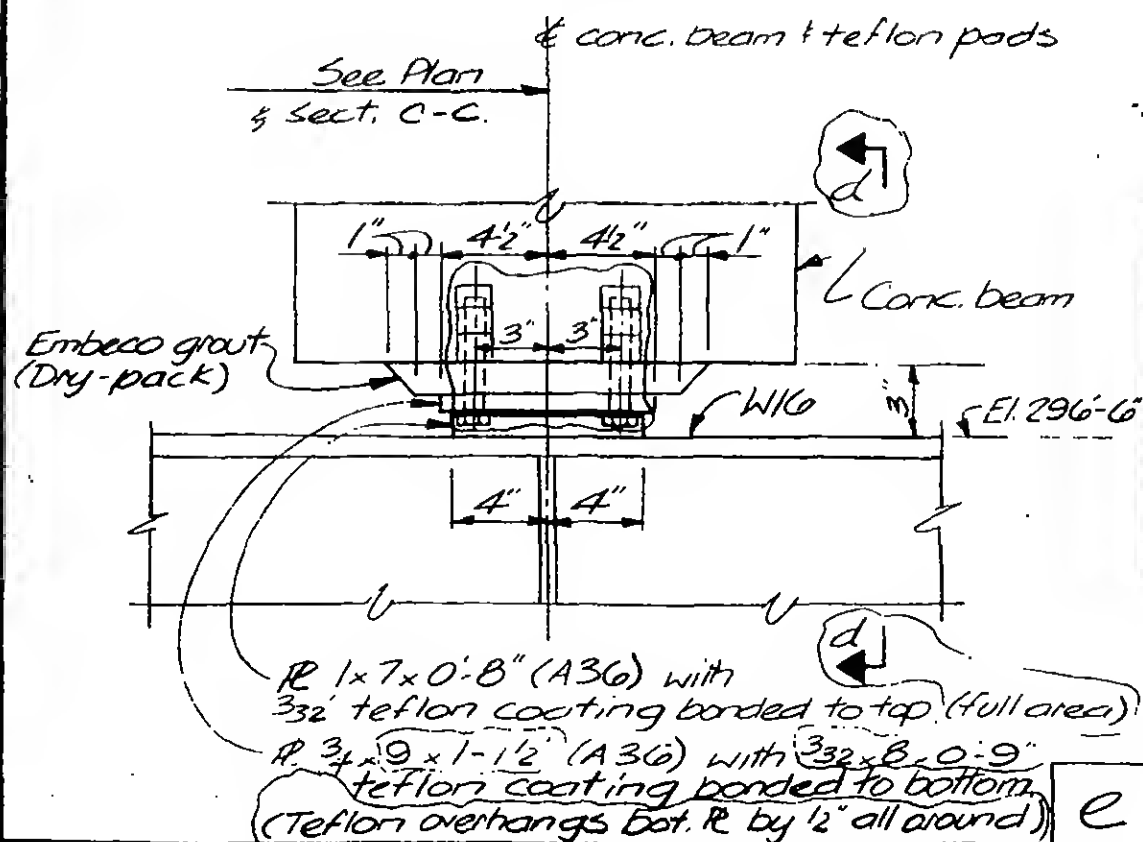 ℄ conc. beam & teflon pads
See Plan
& Sect. C-C.
d
1" 4½" 4½" 1"
Conc. beam
3" 3"
Embeco grout
(Dry-pack)
W16
3"
El. 296'-6"
4" 4"
d
PL 1 x 7 x 0'-8" (A36) with
3/32" teflon coating bonded to top (full area)
PL 3/4 x 9 x 1-1½" (A36) with 3/32 x 8 x 0-9"
teflon coating bonded to bottom
(Teflon overhangs Bot. PL by ½" all around)
e